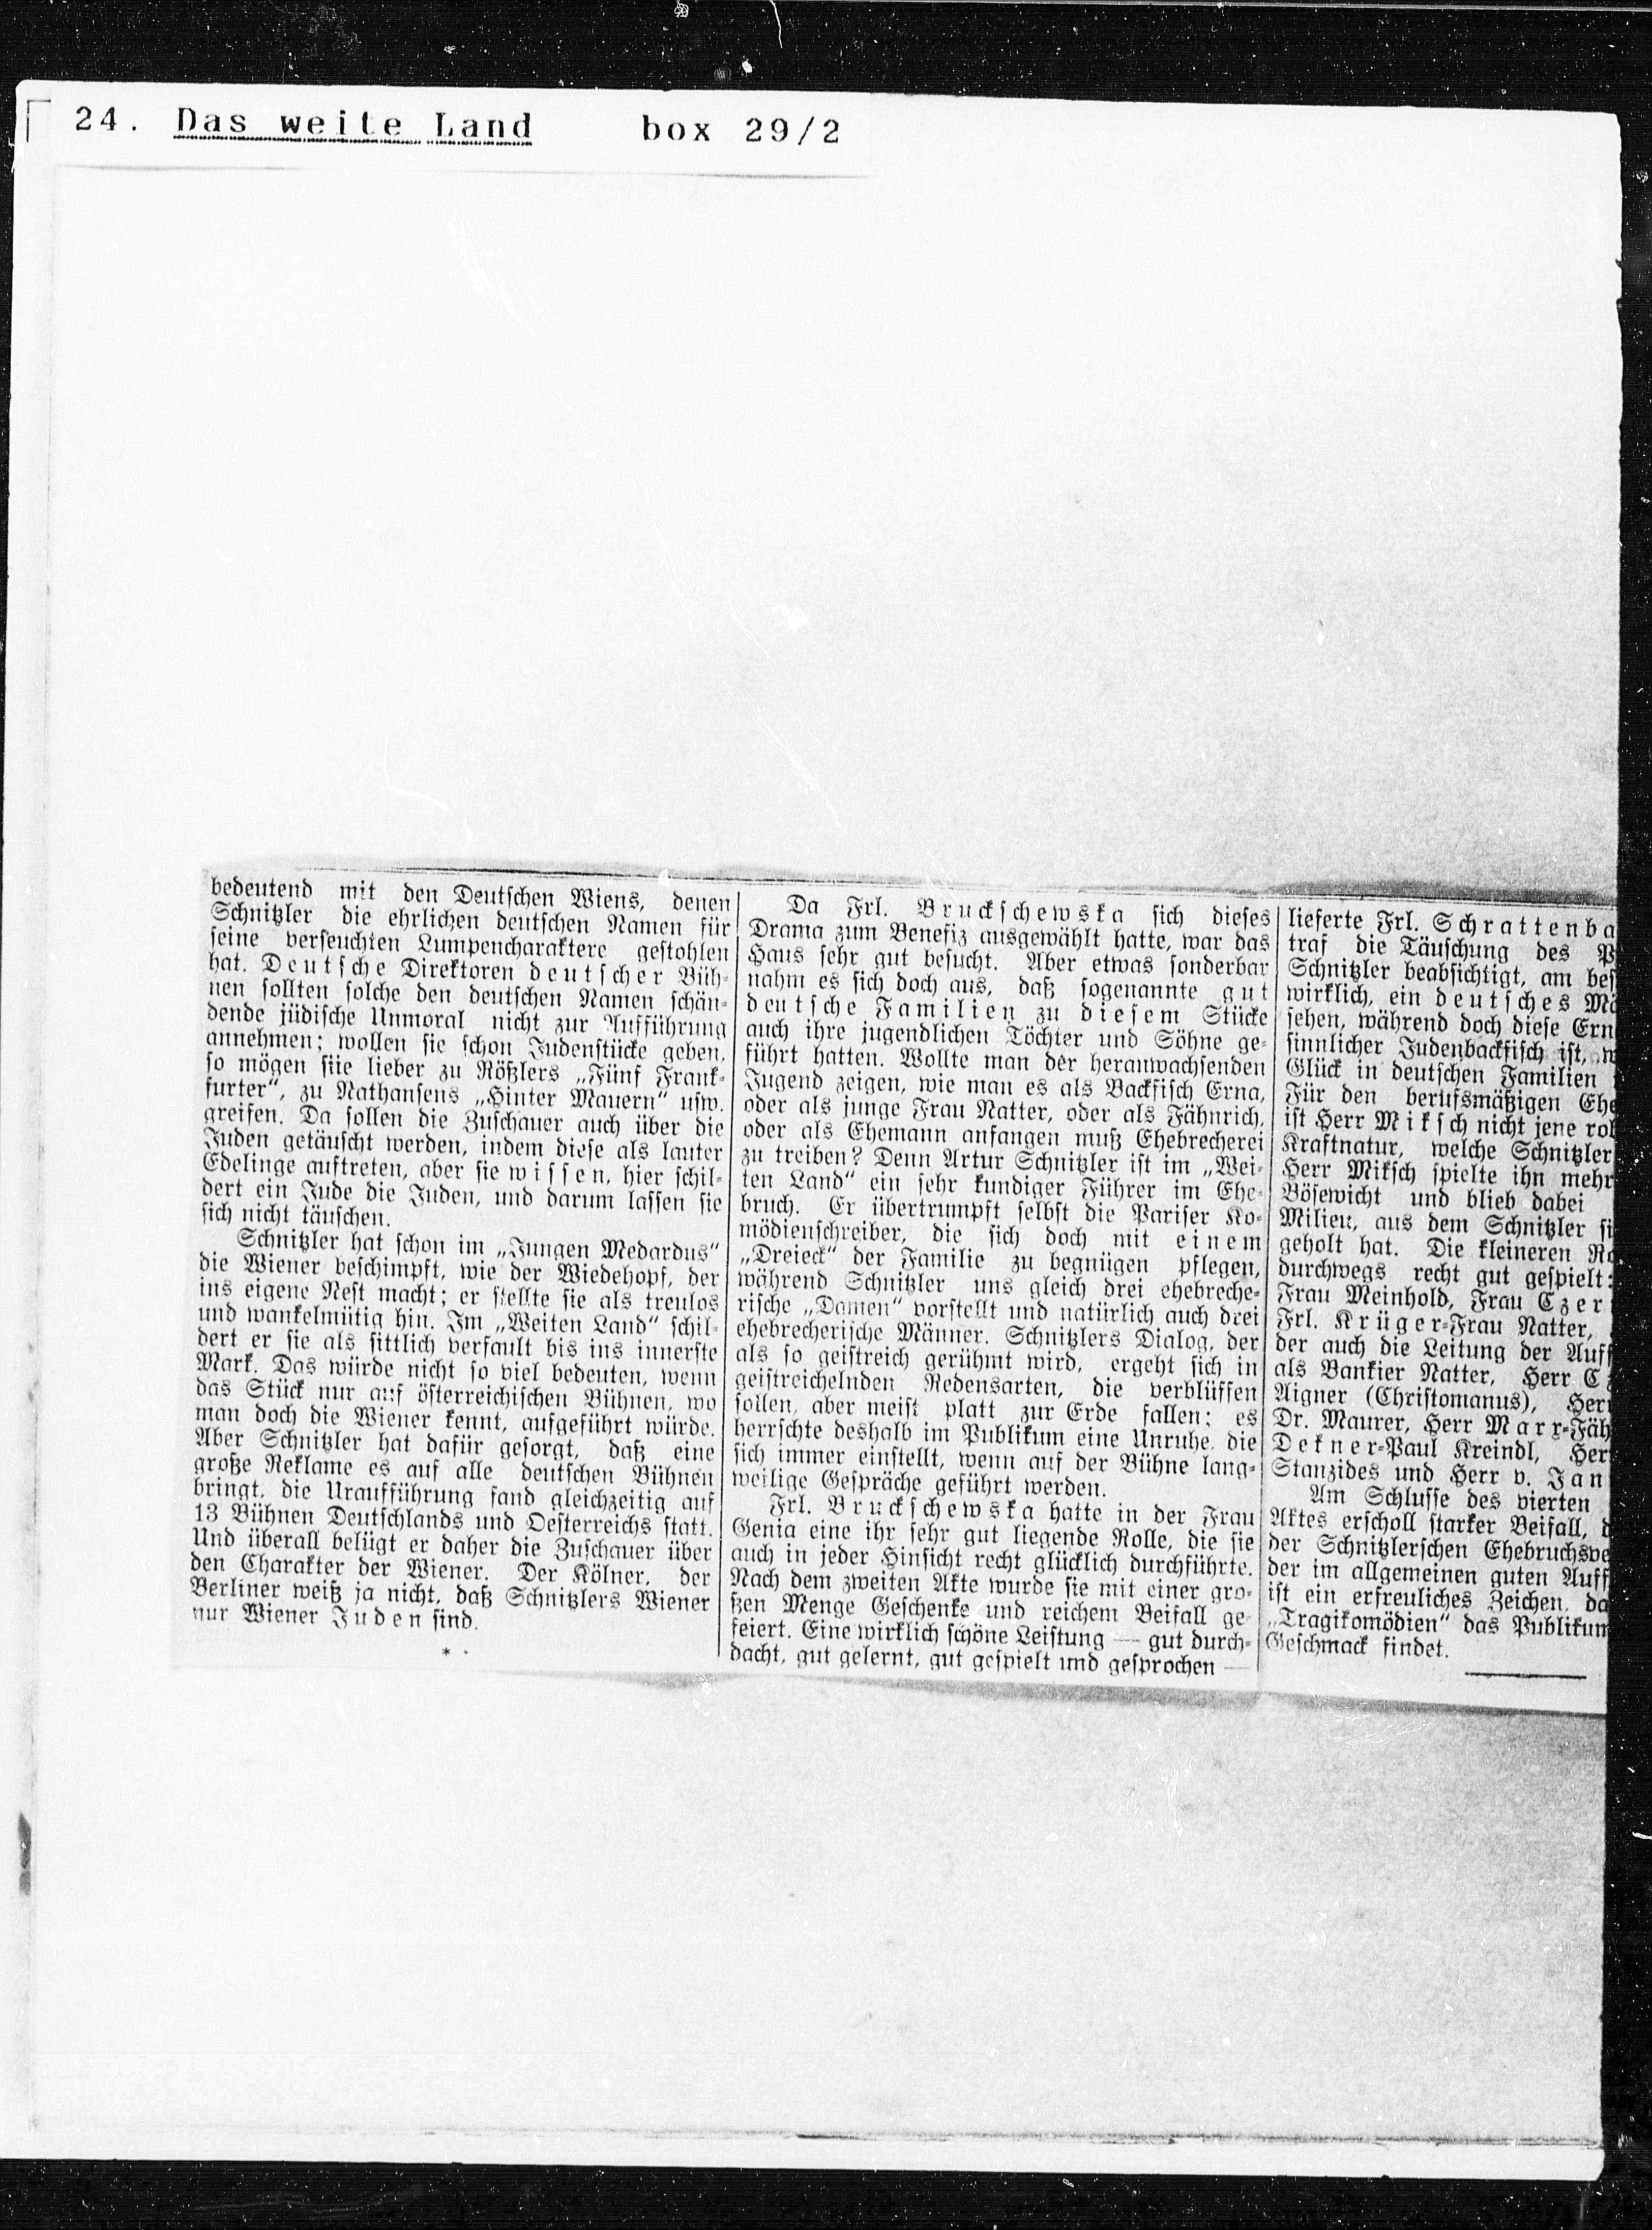 24. Das weite Land box 29/2
bedeutend mit den Deutschen Wiens, denen
Schnitzler die ehrlichen deutschen Namen für
seine verseuchten Lumpencharaktere gestohlen
hat. Deutsche Direktoren deutscher Büh-
nen sollten solche den deutschen Namen schän-
dende jüdische Unmoral nicht zur Aufführung
annehmen; wollen sie schon Judenstücke geben,
so mögen siie lieber zu Rößlers „Fünf Frank-
furter“, zu Nathansens „Hinter Mauern“ usw.
greifen. Da sollen die Zuschauer auch über die
Juden getäuscht werden, indem diese als lauter
Edelinge auftreten, aber sie wissen, hier schil-
dert ein Jude die Juden, und darum lassen sie
sich nicht täuschen.
Schnitzler hat schon im „Jungen Medardus“
die Wiener beschimpft, wie der Wiedehopf, der
ins eigene Nest macht; er stellte sie als treulos
und wankelmütig hin. Im „Weiten Land“ schil-
dert er sie als sittlich verfault bis ins innerste
Mark. Das würde nicht so viel bedeuten, wenn
das Stück nur auf österreichischen Bühnen, wo
man doch die Wiener kennt, aufgeführt würde.
Aber Schnitzler hat dafür gesorgt, daß eine
große Reklame es auf alle deutschen Bühnen
bringt, die Uraufführung fand gleichzeitig auf
13 Bühnen Deutschlands und Oesterreichs statt.
Und überall belügt er daher die Zuschauer über
den Charakter der Wiener. Der Kölner, der
Berliner weiß ja nicht, daß Schnitzlers Wiener
nur Wiener Juden sind.
*
Da Frl. Bruckschewska sich dieses
Drama zum Benefiz ausgewählt hatte, war das
Haus sehr gut besucht. Aber etwas sonderbar
nahm es sich doch aus, daß sogenannte gut
deutsche Familien zu diesem Stücke
auch ihre jugendlichen Töchter und Söhne ge-
führt hatten. Wollte man der heranwachsenden
Jugend zeigen, wie man es als Backfisch Erna,
oder als junge Frau Natter, oder als Fähnrich,
oder als Ehemann anfangen muß Ehebrecherei
zu treiben? Denn Artur Schnitzler ist im „Wei-
ten Land“ ein sehr kundiger Führer im Ehe-
bruch. Er übertrumpft selbst die Pariser Ko-
mödienschreiber, die sich doch mit einem
„Dreieck“ der Familie zu begnügen pflegen,
während Schnitzler uns gleich drei ehebreche-
rische „Damen“ vorstellt und natürlich auch drei
ehebrecherische Männer. Schnitzlers Dialog, der
als so geistreich gerühmt wird, ergeht sich in
geistreichelnden Redensarten, die verblüffen
sollen, aber meist platt zur Erde fallen; es
herrschte deshalb im Publikum eine Unruhe, die
sich immer einstellt, wenn auf der Bühne lang-
weilige Gespräche geführt werden.
Frl. Bruckschewska hatte in der Frau
Genia eine ihr sehr gut liegende Rolle, die sie
auch in jeder Hinsicht recht glücklich durchführte.
Nach dem zweiten Akte wurde sie mit einer gro-
ßen Menge Geschenke und reichem Beifall ge-
feiert. Eine wirklich schöne Leistung — gut durch-
dacht, gut gelernt, gut gespielt und gesprochen —
lieferte Frl. Schrattenba
traf die Täuschung des P
Schnitzler beabsichtigt, am bes
wirklich, ein deutsches Mä
sehen, während doch diese Ern
sinnlicher Judenbackfisch ist, w
Glück in deutschen Familien
Für den berufsmäßigen Ehe
ist Herr Miksch nicht jene rob
Kraftnatur, welche Schnitzler
Herr Miksch spielte ihn mehr
Bösewicht und blieb dabei
Milieu, aus dem Schnitzler si
geholt hat. Die kleineren Ro
durchwegs recht gut gespielt:
Frau Meinhold, Frau Czer
Frl. Krüger-Frau Natter,
der auch die Leitung der Auff
als Bankier Natter, Herr Cz
Aigner (Christomanus), Herr
Dr. Maurer, Herr Marx-Fäh
Dekner-Paul Kreindl, Her
Stanzides und Herr v. Jan
Am Schlusse des vierten
Aktes erscholl starker Beifall, d
der Schnitzlerschen Ehebruchsve
der im allgemeinen guten Auff
ist ein erfreuliches Zeichen, da
„Tragikomödien“ das Publikum
Geschmack findet.